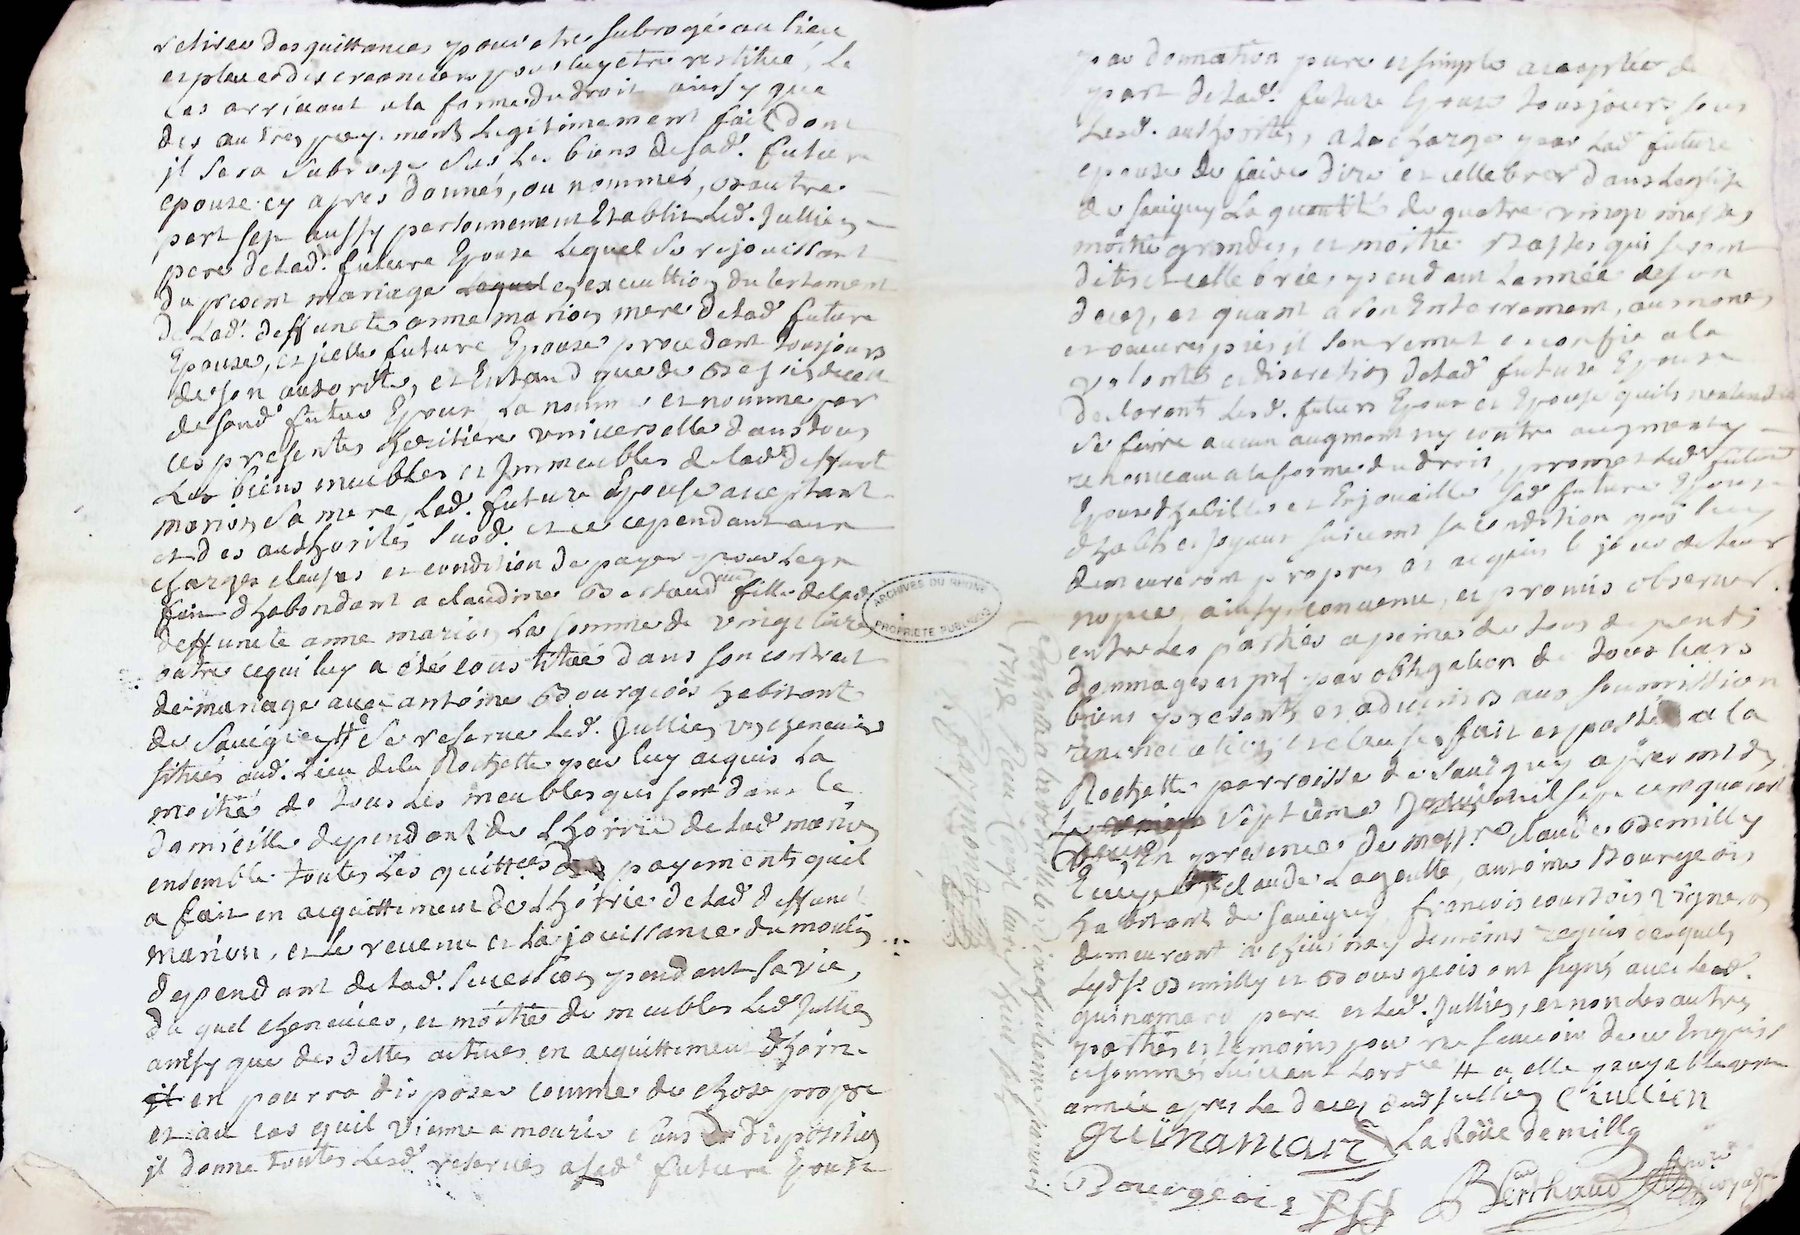 retirer des quittances pour etre subrogé au lieu
et place des creanciers pour luy etre restitué, le
cas arrivant a la forme du droit ainsy que
des autres payements legitimement fait dont
il sera subrogé sur les biens de lad. future
epouse cy apres donnés, ou nommés, et autre
part sest aussy personnement etablit led. Jullien
pere de lad. future Epouse lequel se rejouissant
du present mariage lequel en execution du testament
de lad. deffuncte anne marion mere de lad. future
Epouse, et jcelle future Epouse procedant toujours
de son authorité, et Entand que de besoin de celle
de sond. futur Epoux la nomme et nomme par
ces presentes heritiere universelle dans tous
les biens meubles et Jmmeubles de lad. deffuncte
marion sa mere, lad. future Epouse acceptant
et des authorités susd. et ce cependant aux
charges clauses et condition de payer pour legat
fait d'habondant a claudine Berthaud fille de lad.
deffuncte anne marion la somme de vingt livres
outre ce qui luy a été constitué dans son contrat
de mariage avec antoine Bourgeois habitant
de Savigny # Se reserve led. Jullien un chenevier
situés aud. lieu de la Rochette par luy acquis la
moitié de tous les meubles qui sont dans le
domicille dependant de L'horrie de lad. marion
ensemble toutes les quittces des payements quil
a fait en acquittement de L'hoirie de lad. deffuncte
marion, et le revenu et la jouissance du moulin
dependant de lad. succession pendant sa vie,
du quel chenevier, et moitié de meubles led. Jullien
ainsy que des dettes actives en acquittement d'hoirie
il en pourra disposer comme de chose propre
et au cas quil vienne a mourir sans disposition
il donne toutes lesd. reserves a lad. future Epouse
par donnation pure et simple acceptée de
part de lad. future Epouse toujours sous
lesd. authorités, a la charge par lad. future
epouse de faire dire et cellebrer dans leglise
de savigny la quantité de quatre vingt messes
moitié grandes, et moitié Basses qui seront
dites et cellebrées pendant lannée de son
decez, et quant a son Enterrement, aumones
et oeuvres pies il son remet et confie a la
volonté et discretion de lad. future Epouse
declarants lesd. futurs Epoux et Epouse quils nentendent
se faire aucun augment ny contre augment y
renonceant a la forme du droit, promet led. futur
Epoux d'habiller et Enjouailler lad. future Epouse
d'habits et joyaux suivant sa condition qui luy
demeureront propres et acquis le jour de leur
nopce, ainsy convenu, et promis observer
entre les parties a peines de tous depends
dommages et jnt. par obligation de tous leurs
biens presents et advenirs aux soumission
renonciation et clauses fait et passé a la
Rochette parroisse de Savigny apres midy
Le septieme Janvier mil sept cent quarante
En presence de messre claude Demilly
Ecuyer, claude Lagoutte, antoine Bourgeois
habitant de Savigny, francois courtois vigneron
demeurant a chevinay temoins requis desquels
lesd. sr. Demilly et Bourgeois ont signé avec led.
guinamard pere et led. Jullien, et non les autres
parties et temoins pour ne scavoir de ce Enquis
et sommés suivant Lord.ce # a elle payable une
année apres le decez dud. Jullien C Jullien
guinamard LaRoüe demilly
Bourgeois Berthaud
ARCHIVES DU RHÔNE
PROPRIÉTÉ PUBLIQUE
1742